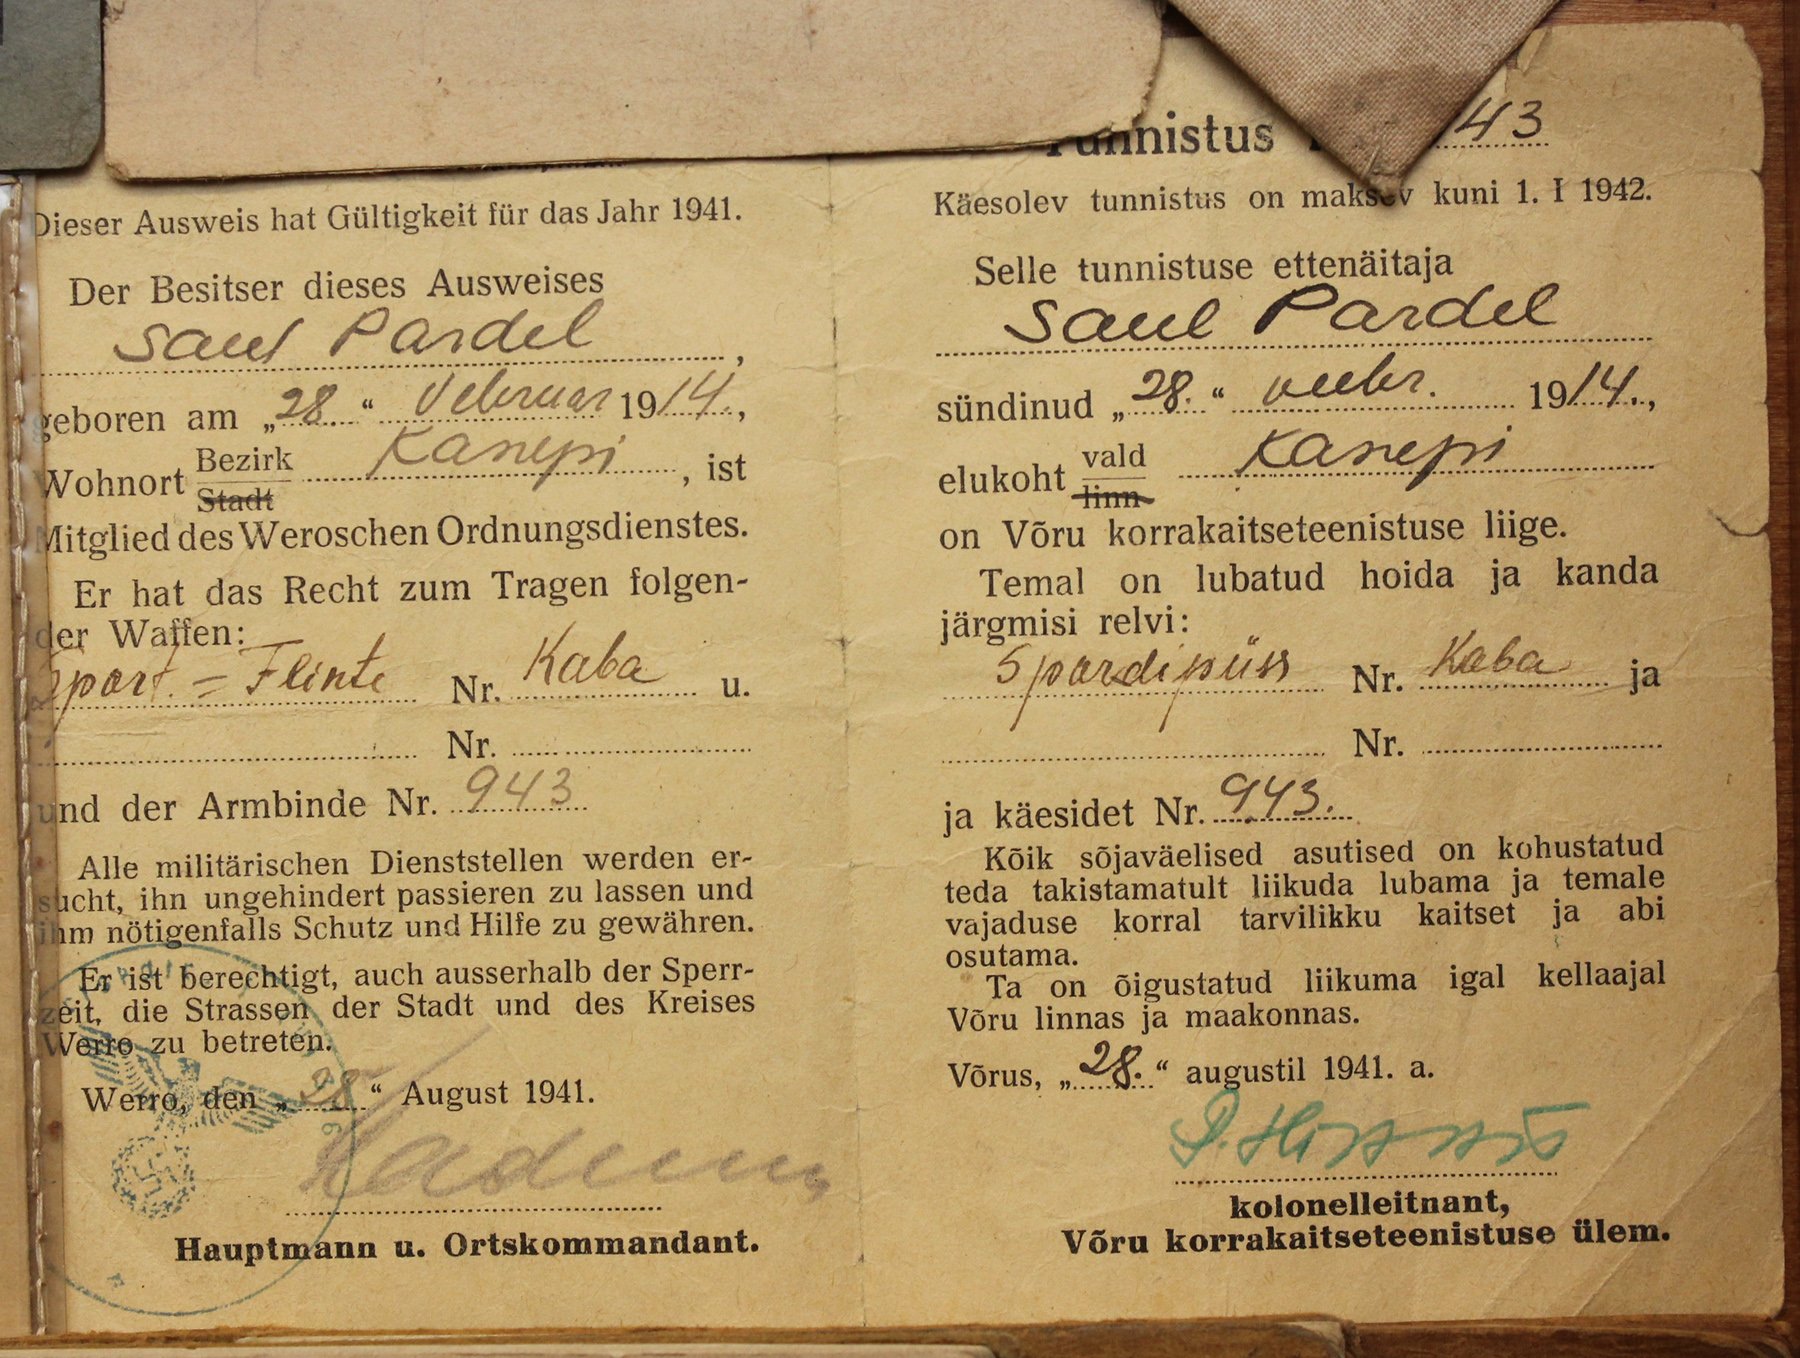 Dieser Ausweis hat Gültigkeit für das Jahr 1941.
Der Besitser dieses Ausweises
Saul Pardel,
geboren am „28.“ Vebruar 1914.,
Wohnort Bezirk Kanepi, ist
Stadt
Mitglied des Weroschen Ordnungsdienstes.
Er hat das Recht zum Tragen folgen-
der Waffen:
Sport. = Flinte Nr. Kaba u.
Nr.
und der Armbinde Nr. 943
Alle militärischen Dienststellen werden er-
sucht, ihn ungehindert passieren zu lassen und
ihm nötigenfalls Schutz und Hilfe zu gewähren.
Er ist berechtigt, auch ausserhalb der Sperr-
zeit, die Strassen der Stadt und des Kreises
Werro zu betreten.
Werro, den „28“ August 1941.
Hauptmann u. Ortskommandant.
Tunnistus 43
Käesolev tunnistus on maksev kuni 1. I 1942.
Selle tunnistuse ettenäitaja
Saul Pardel
sündinud „28.“ veebr. 1914.,
elukoht vald Kanepi
linn
on Võru korrakaitseteenistuse liige.
Temal on lubatud hoida ja kanda
järgmisi relvi:
Spordipüss Nr. Kaba ja
Nr.
ja käesidet Nr. 943.
Kõik sõjaväelised asutised on kohustatud
teda takistamatult liikuda lubama ja temale
vajaduse korral tarvilikku kaitset ja abi
osutama.
Ta on õigustatud liikuma igal kellaajal
Võru linnas ja maakonnas.
Võrus, „28.“ augustil 1941. a.
kolonelleitnant,
Võru korrakaitseteenistuse ülem.